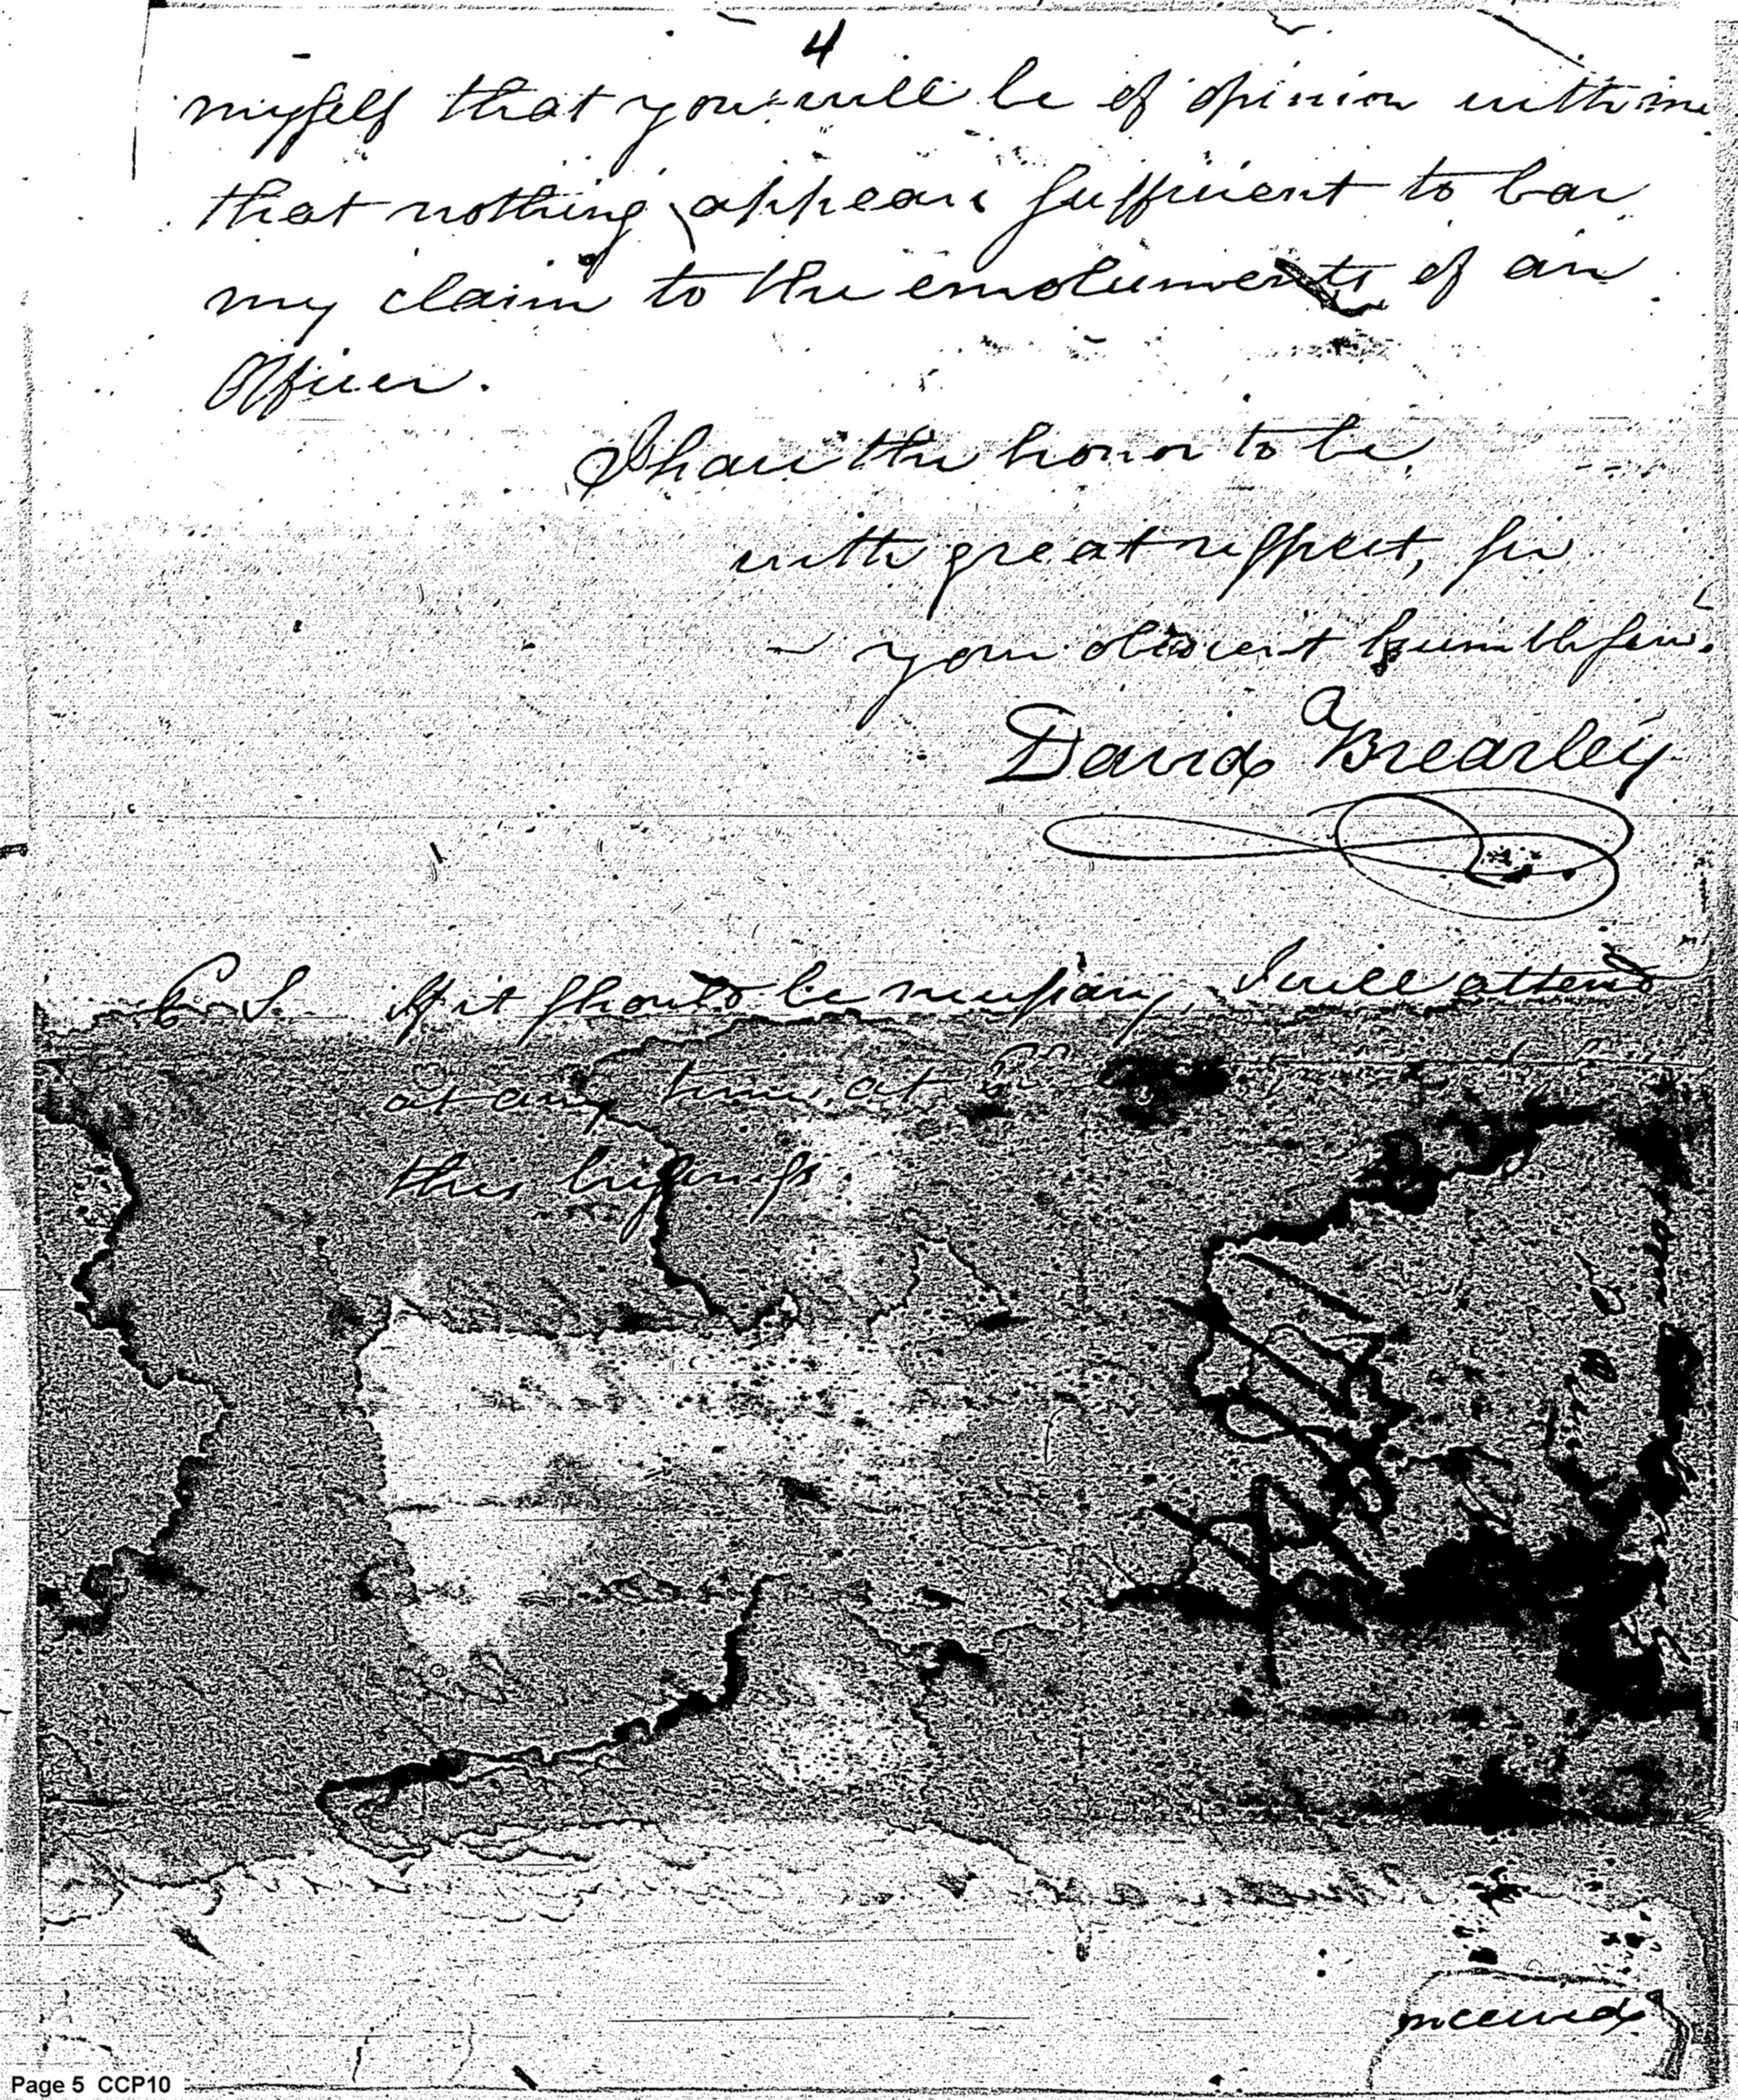 4
myself that you will be of opinion with me
that nothing appears sufficient to bar
my claim to the emoluments of an
Officer.
I have the honor to be
with great respect, sir
your obedient humble serv.
David Brearley
P. S. If it should be necessary, I will attend
at any time, at
this business.
received
Page 5 CCP10